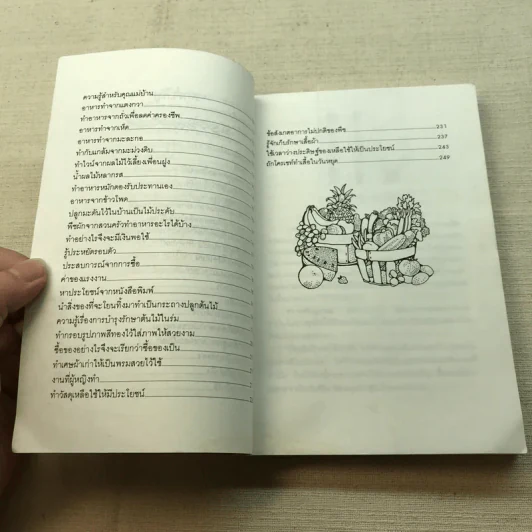 ความรู้สำหรับคุณแม่บ้าน
อาหารทำจากแตงกวา
ทำอาหารจากถั่วเพื่อลดค่าครองชีพ
อาหารทำจากเห็ด
อาหารทำจากมะละกอ
ทำกับแกล้มจากมะม่วงดิบ
ทำไวน์จากผลไม้ไว้เลี้ยงเพื่อนฝูง
น้ำผลไม้หลากรส
ทำอาหารหมักดองรับประทานเอง
อาหารจากข้าวโพด
ปลูกมะดันไว้ในบ้านเป็นไม้ประดับ
พืชผักจากสวนครัวทำอาหารอะไรได้บ้าง
ทำอย่างไรจึงจะมีเงินพอใช้
รู้ประหยัดรอบตัว
ประสบการณ์จากการซื้อ
ค่าของแรงงาน
หาประโยชน์จากหนังสือพิมพ์
นำสิ่งของที่จะโยนทิ้งมาทำเป็นกระถางปลูกต้นไม้
ความรู้เรื่องการบำรุงรักษาต้นไม้ในร่ม
ทำกรอบรูปภาพสีทองไว้ใส่ภาพให้สวยงาม
ซื้อของอย่างไรจึงจะเรียกว่าซื้อของเป็น
ทำเศษผ้าเก่าให้เป็นพรมสวยไว้ใช้
งานที่ผู้หญิงทำ
ทำวัสดุเหลือใช้ให้มีประโยชน์
ข้อสังเกตอาการไม่ปกติของพืช 231
รู้จักเก็บรักษาเสื้อผ้า 237
ใช้เวลาว่างประดิษฐ์ของเหลือใช้ให้เป็นประโยชน์ 243
ถักโครเชท์ทำเสื้อในวันหยุด 249